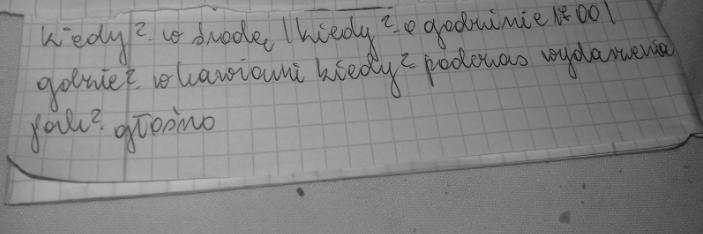 kiedy? w środę | kiedy? o godzinie 17:00 |
gdzie? w kawiarni kiedy? podczas wydarzenia
jak? głośno